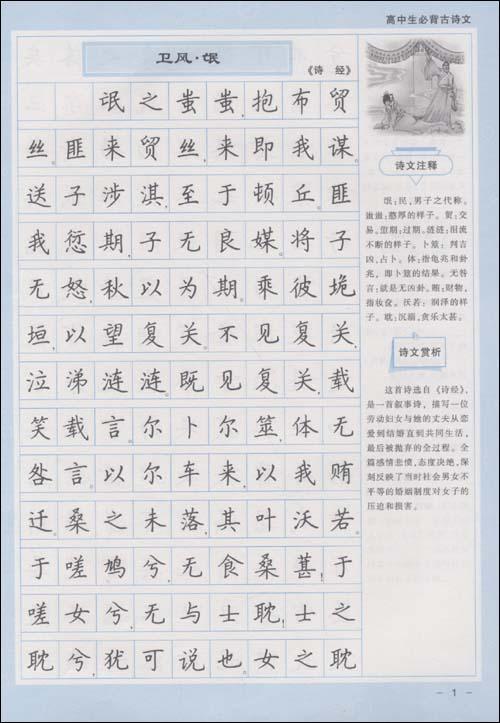 高中生必背古诗文
卫风·氓
《诗 经》
氓之蚩蚩,抱布贸
丝。匪来贸丝,来即我谋。
送子涉淇,至于顿丘。匪
我愆期,子无良媒。将子
无怒,秋以为期。乘彼垝
垣,以望复关。不见复关,
泣涕涟涟。既见复关,载
笑载言。尔卜尔筮,体无
咎言。以尔车来,以我贿
迁。桑之未落,其叶沃若。
于嗟鸠兮,无食桑葚!于
嗟女兮,无与士耽!士之
耽兮,犹可说也。女之耽
诗文注释
氓:民,男子之代称。
蚩蚩:憨厚的样子。贸:交
易。愆期:过期。涟涟:泪流
不断的样子。卜筮:判吉
凶,占卜。体:指龟兆和卦
兆,即卜筮的结果。无咎
言:就是无凶卦。贿:财物,
指妆奁。沃若:润泽的样
子。耽:沉溺,贪乐太甚。
诗文赏析
这首诗选自《诗经》,
是一首叙事诗，描写一位
劳动妇女与她的丈夫从恋
爱到结婚直到共同生活,
最后被抛弃的全过程。全
篇感情悲愤,态度决绝,深
刻反映了当时社会男女不
平等的婚姻制度对女子的
压迫和损害。
- 1 -